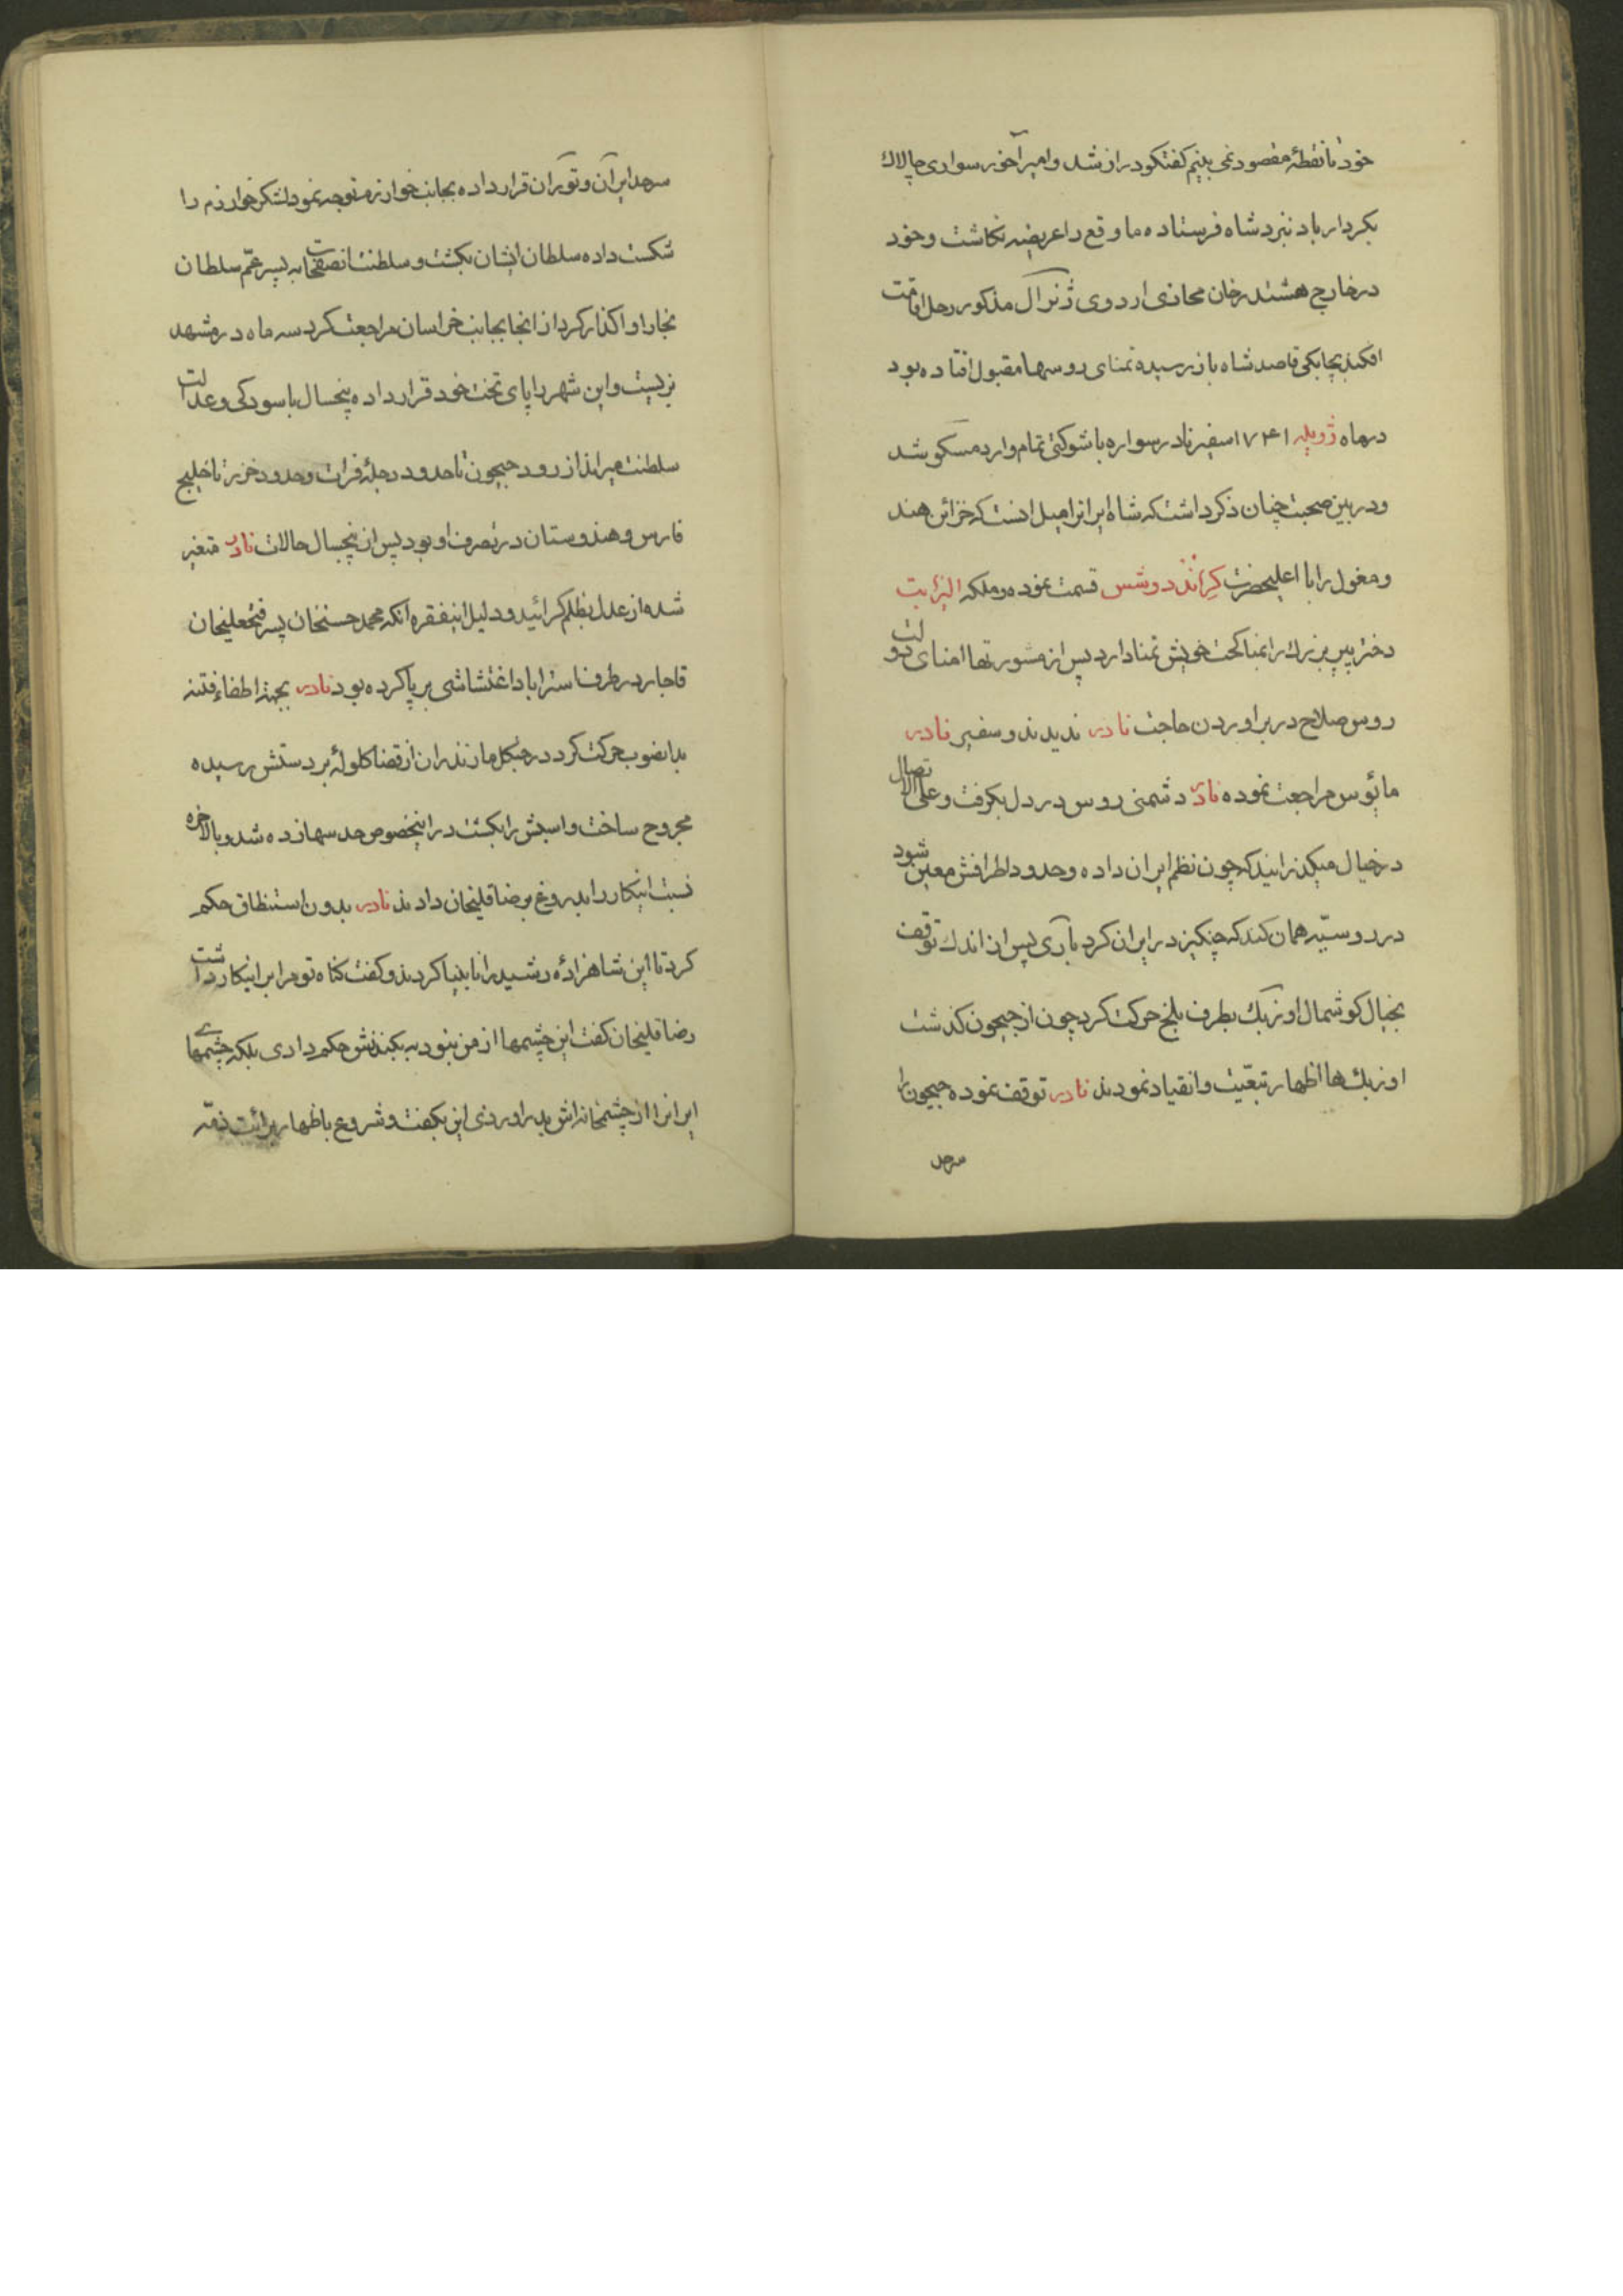 خود تا نقطهٔ مقصود نمی بینم گفتگو دراز شد و امیرآخور سواری چالاك
بکردار باد نبرد شاه فرستاده ماوقع را عریضه نکاشت و خود
در خارج هشتدرخان محاذی اردوی ژنرآل مذکور رحل اقامت
افکند بچابکی قاصد شاه باز رسیده تمنای روسها مقبول افتاده بود
در ماه ژویله ۱۷۴۱ سفیر نادر سواره با شوکتی تمام وارد مسکو شد
و در بین صحبت چنان ذکر داشت که شاه ایرانرا میل انست که خزائن هند
و مغول را با اعلیحضرت کراند دوشس قسمت نموده و ملکه الیزابت
دختر پیر بزرك را بمناکحت خویش تمنا دارد پس از مشورتها امنای دولت
روس صلاح در براوردن حاجت نادر ندیدند و سفیر نادر
مائوس مراجعت نموده نادر دشمنی روس در دل بکرفت و علی الاتصال
در خیال میکذرانید که چون نظم ایران داده و حدود اطرافش معین شود
در روسیّه همان کند که چنکیز در ایران کرد بآری پس از اندك توقف
بخیال کوشمال اوزبك بطرف بلخ حرکت کرد چون از جیحون کذشت
اوزبك ها اظهار تبعّیت و انقیاد نمودند نادر توقف نموده جیحون را
سرحد
سرحد ایرآن و توران قرار داده بجانب خوارزم متوجه نمود لشکر خوارزم را
شکست داده سلطان ایشان بکشت و سلطنت انصفحات به پسر عمّ سلطان
بخارا واکذار کرد از انجا بجانب خراسان مراجعت کرد سه ماه در مشهد
بزیست و این شهر را پای تخت خود قرار داده پنجسال باسودکی و عدالت
سلطنت میراند از رود جیحون تا حدود دجله فرات و حدود خزر تا خلیج
فارس و هندوستان در تصرف او بود پس از پنجسال حالات نادر متغیر
شده از عدل بظلم کرائید و دلیل اینفقره آنکه محمد حسنخان پسر فتحعلیخان
قاجار در طرف استراباد اغتشاشی برپا کرده بود نادر بجهة اطفاء فتنه
بدانصوب حرکت کرد در جنکل مازندران از قضا کلولهٔ بر دستش رسیده
مجروح ساخت و اسبش را بکشت در اینخصوص حدسها زده شد و بالاخره
نسبت اینکار را بدروغ برضاقلیخان دادند نادر بدون استنطاق حکم
کرد تا این شاهزادهٔ رشید را نابینا کردند و کفت کناه تو مرا بر اینکار داشت
رضاقلیخان کفت این چشمها از من نبود به بکندنش حکم دادی بلکه چشمهای
ایرانرا از چشمخانه اش بدر اوردی این بکفت و شروع باظهار برائت ذمّه